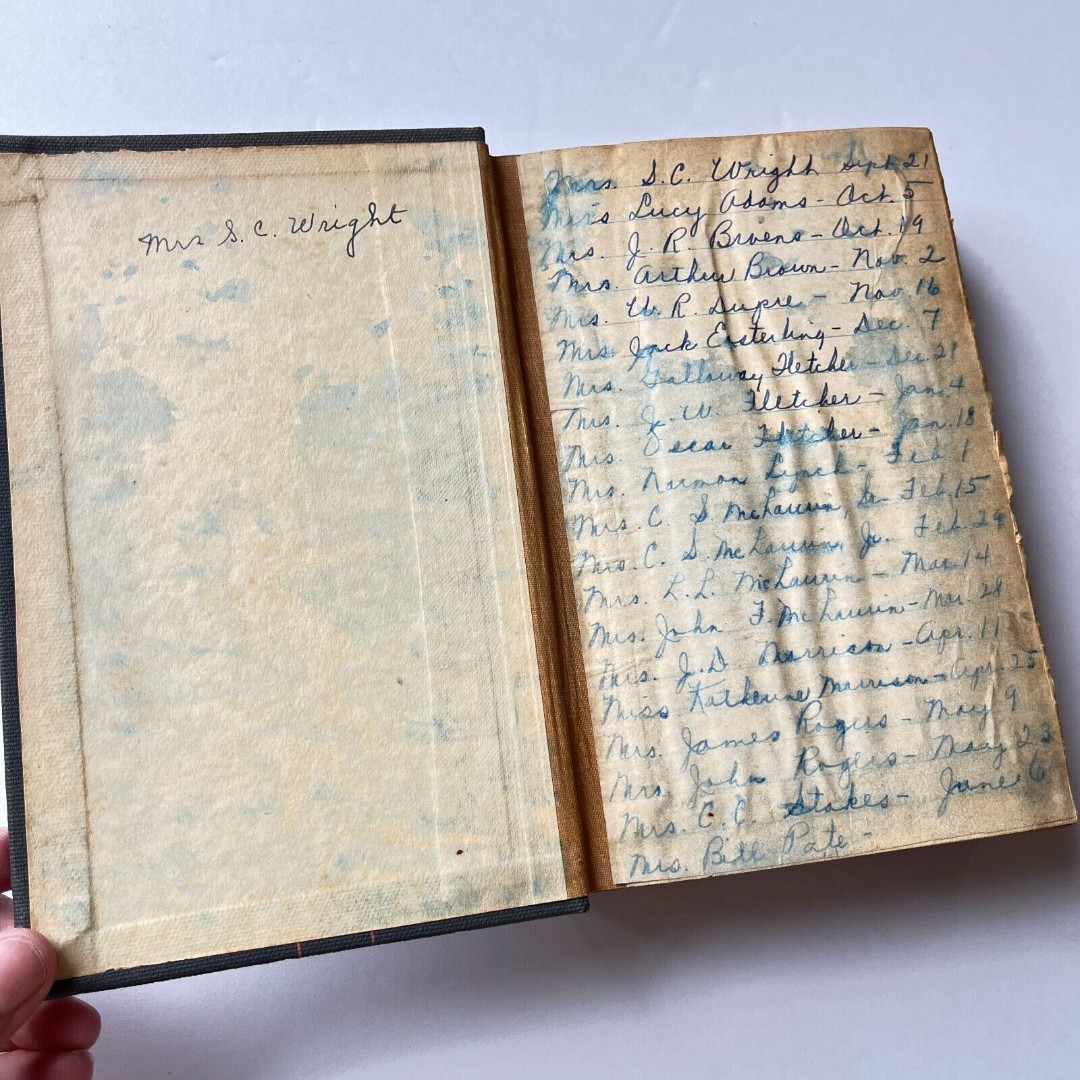 Mrs S. C. Wright
Mrs. S.C. Wright Sept. 21
Mrs Lucy Adams - Oct. 5
Mrs. J. R. Bivens - Oct. 19
Mrs. Arthur Brown - Nov. 2
Mrs. W. R. Dupre - Nov. 16
Mrs. Jack Easterling - Dec. 7
Mrs. Galloway Fletcher - Dec. 21
Mrs. J. W. Fletcher - Jan. 4
Mrs. Oscar Fletcher - Jan. 18
Mrs. Norman Lynch - Feb 1
Mrs. C. S. McLaurin Sr. Feb. 15
Mrs. C. S. McLaurin, Jr. Feb. 29
Mrs. L. L. McLaurin - Mar. 14
Mrs. John F. McLaurin - Mar. 28
Mrs. J.D. Morrison - Apr. 11
Miss Katherine Morrison - Apr. 25
Mrs. James Rogers - May 9
Mrs. John Rogers - May 23
Mrs. C. C. Stakes - June 6
Mrs. Bill Pate -